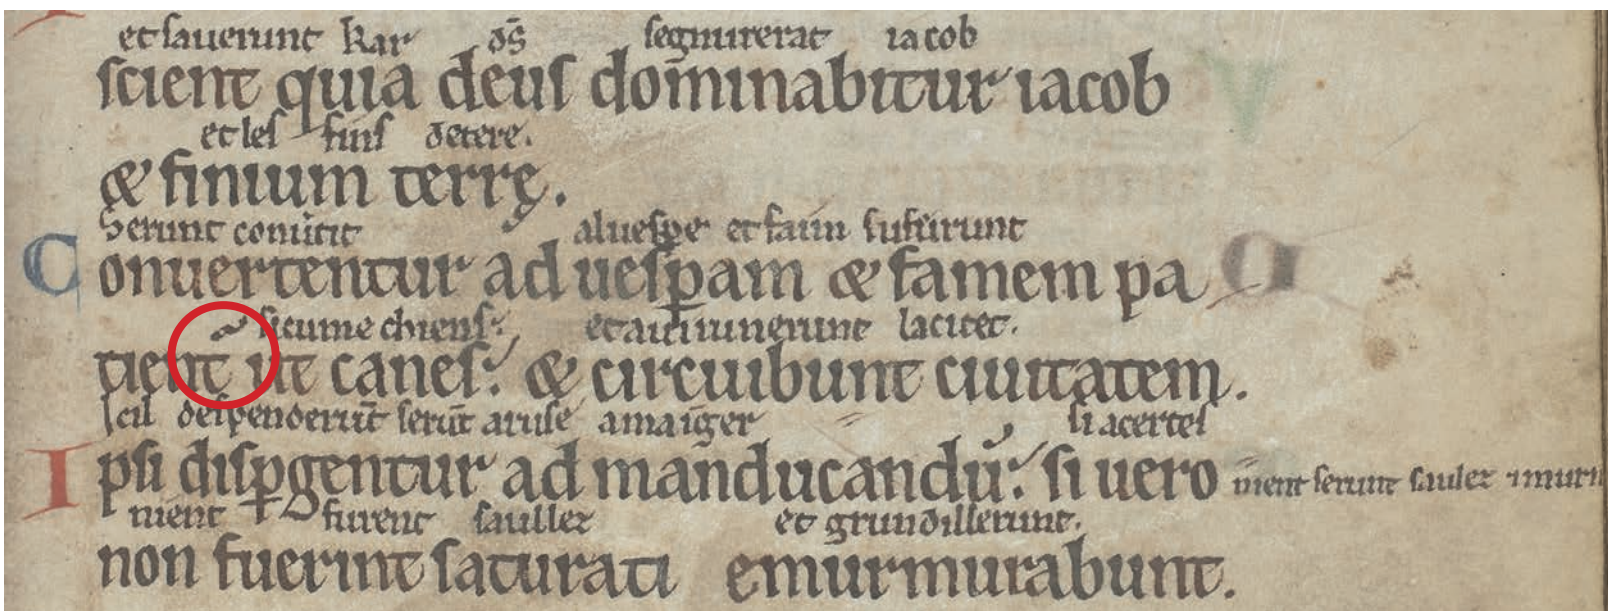 et sauerunt kar d̄s segnurerat iacob
scient quia deus dom̄inabitur iacob
et les fins de tere.
& finium terrę.
Serunt conuertit al uespe et faim suffirunt
Conuertentur ad uesꝑam & famem pa
sicume chiens. et auirunerunt la citet.
tient ut canes: & circuibunt ciuitatem.
Icil despenderunt serūt a ruse a maīger si a certes
Ipsi disꝑgentur ad manducandū: si uero nient serunt saulez murm
nient furent saullez et grundillerunt.
non fuerint saturati emurmurabunt.